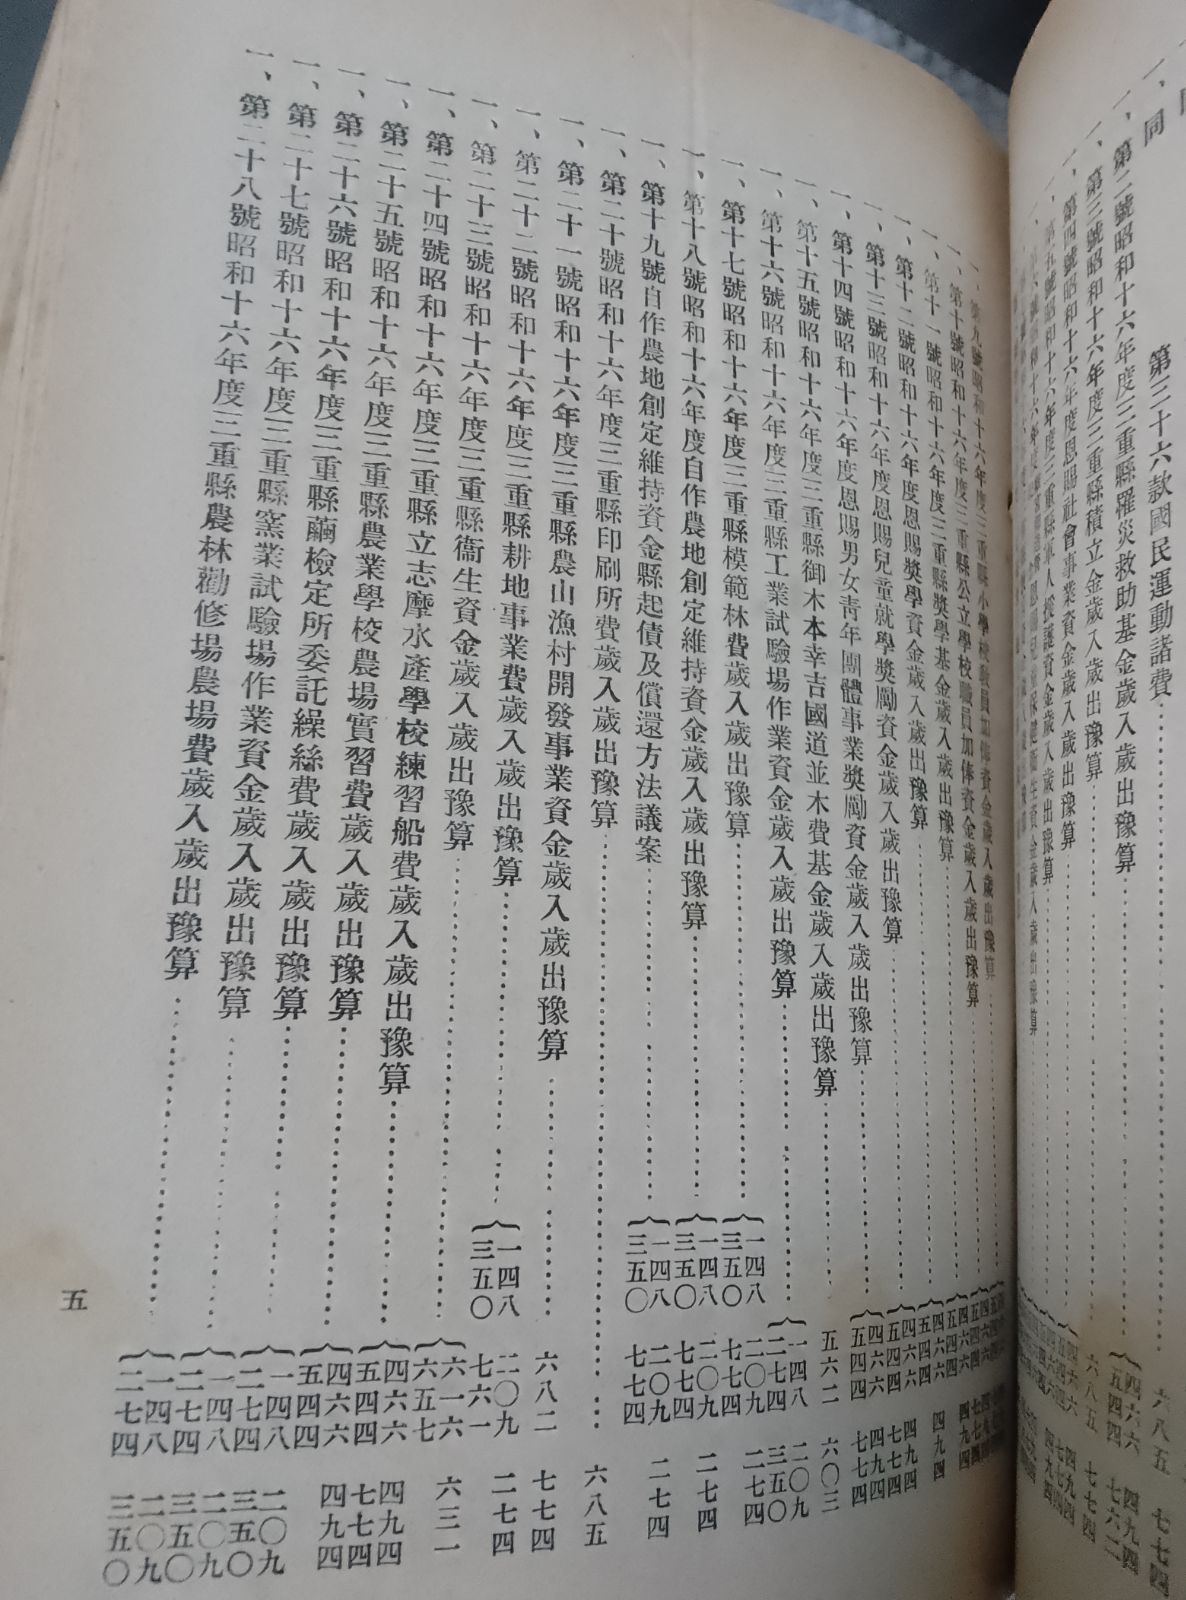 一、同　第三十六款國民運動諸費……六八五　七七四
一、第二號昭和十六年度三重縣罹災救助基金歲入歲出豫算……
一、第三號昭和十六年度三重縣積立金歲入歲出豫算……六八五　七七四
一、第四號昭和十六年度恩賜社會事業資金歲入歲出豫算……
一、第五號昭和十六年度三重縣軍人援護資金歲入歲出豫算……
一、第九號昭和十六年度三重縣小學校敎員加俸資金歲入歲出豫算……
一、第十號昭和十六年度三重縣公立學校職員加俸資金歲入歲出豫算……
一、第十一號昭和十六年度三重縣奬學基金歲入歲出豫算……
一、第十二號昭和十六年度恩賜奬學資金歲入歲出豫算……四六六　四九四
五四四
一、第十三號昭和十六年度恩賜兒童就學奬勵資金歲入歲出豫算……四六六　四九四
五四四　七七四
一、第十四號昭和十六年度恩賜男女靑年團體事業奬勵資金歲入歲出豫算……四六六　四九四
五四四　七七四
一、第十五號昭和十六年度三重縣御木本幸吉國道並木費基金歲入歲出豫算……五六二　六〇三
一、第十六號昭和十六年度三重縣工業試驗場作業資金歲入歲出豫算……一四八　二〇九
二七四　三五〇
一、第十七號昭和十六年度三重縣模範林費歲入歲出豫算……一四八　二〇九　二七四
三五〇　七七四
一、第十八號昭和十六年度自作農地創定維持資金歲入歲出豫算……一四八　二〇九　二七四
三五〇　七七四
一、第十九號自作農地創定維持資金縣起債及償還方法議案……一四八　二〇九　二七四
三五〇　七七四
一、第二十號昭和十六年度三重縣印刷所費歲入歲出豫算……六八五
一、第二十一號昭和十六年度三重縣農山漁村開發事業資金歲入歲出豫算……六八二　七七四
一、第二十二號昭和十六年度三重縣耕地事業費歲入歲出豫算……一四八　二〇九　二七四
三五〇　七六一
一、第二十三號昭和十六年度三重縣衞生資金歲入歲出豫算……六一六　六三一
六五七
一、第二十四號昭和十六年度三重縣立志摩水產學校練習船費歲入歲出豫算……四六六　四九四
五四四　七七四
一、第二十五號昭和十六年度三重縣農業學校農場實習費歲入歲出豫算……四六六　四九四
五四四
一、第二十六號昭和十六年度三重縣繭檢定所委託繰絲費歲入歲出豫算……一四八　二〇九
二七四　三五〇
一、第二十七號昭和十六年度三重縣窯業試驗場作業資金歲入歲出豫算……一四八　二〇九
二七四　三五〇
一、第二十八號昭和十六年度三重縣農林勸修場農場費歲入歲出豫算……一四八　二〇九
二七四　三五〇
五